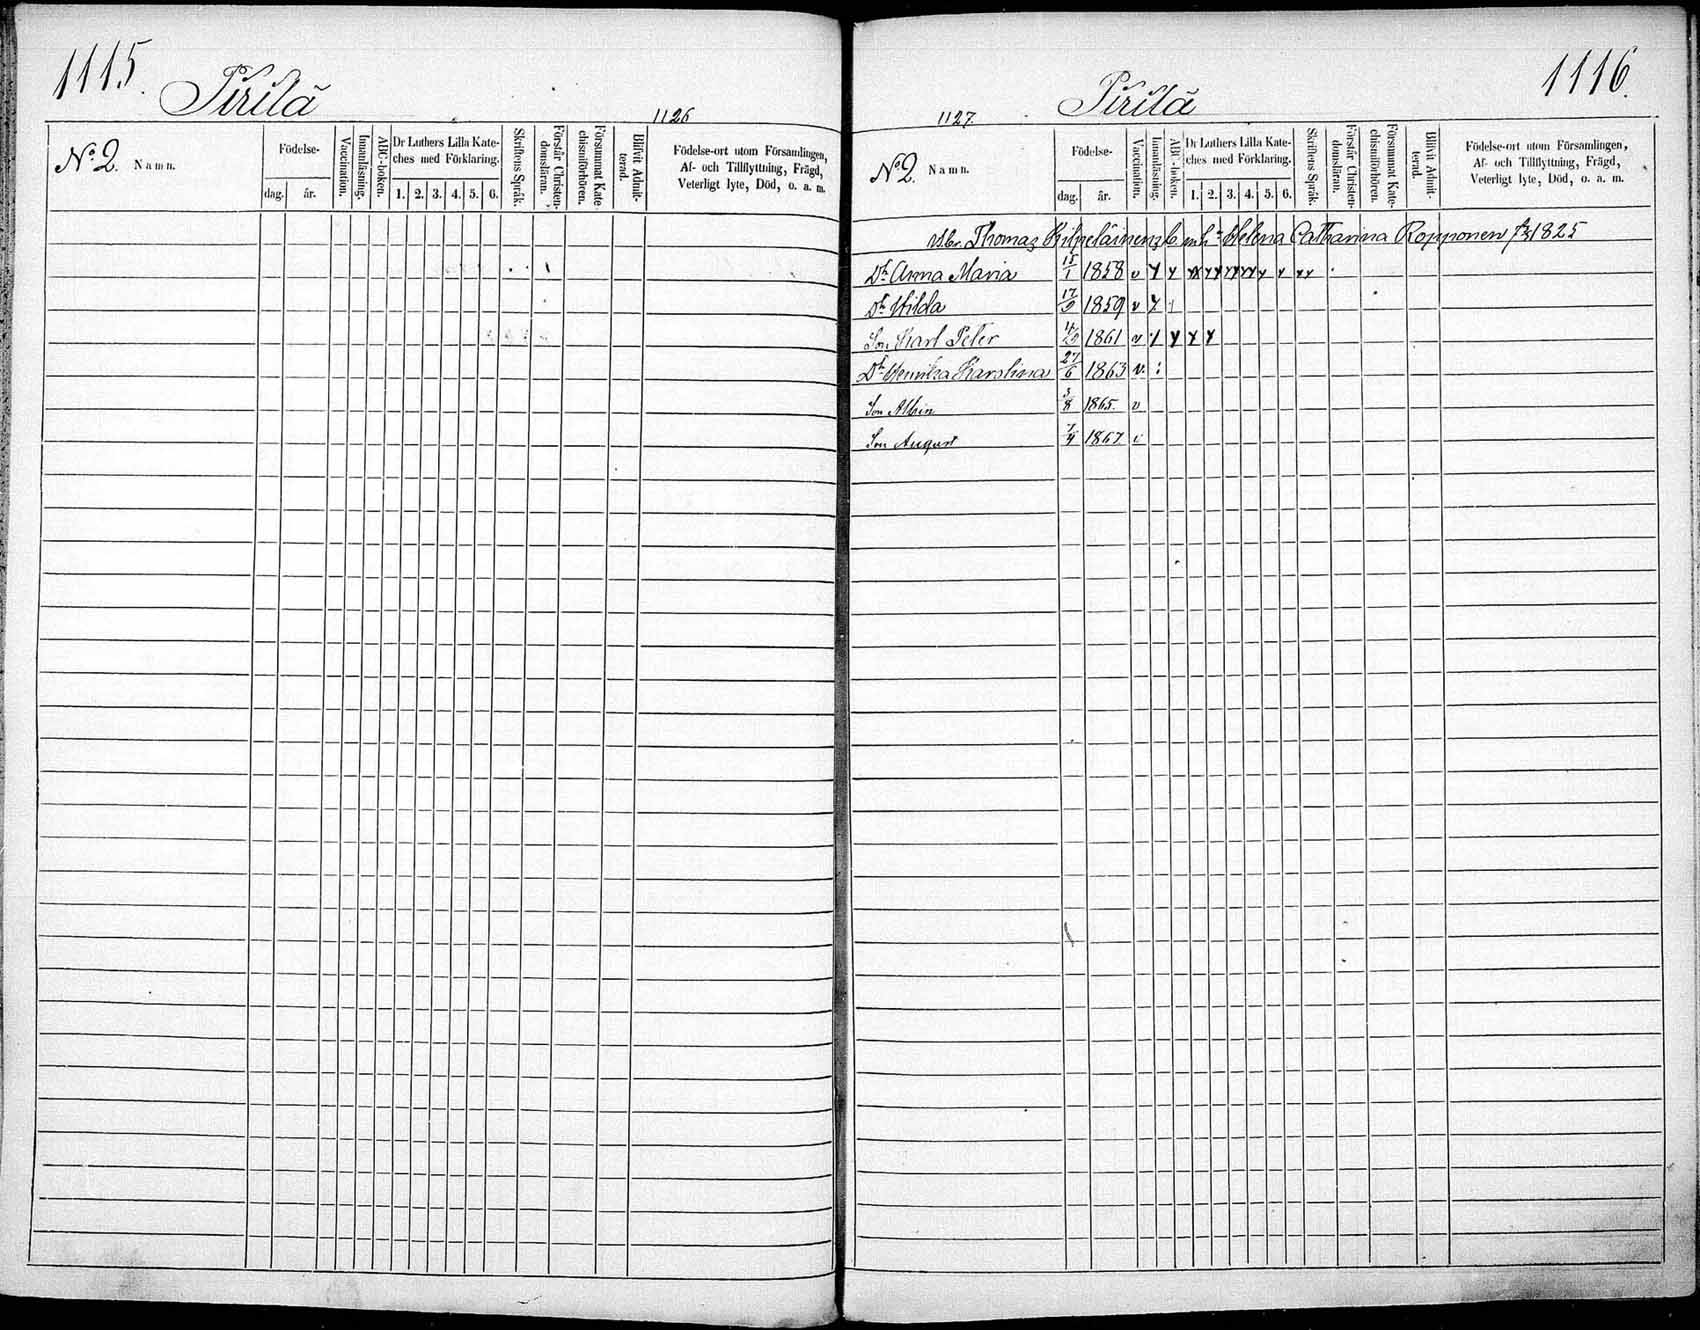 1115.
Pirilä
1126
No 2. Namn.
Födelse-
dag. år.
Vaccination.
Innanläsning.
ABC-boken.
Dr Luthers Lilla Kate-
ches med Förklaring.
1. 2. 3. 4. 5. 6.
Skriftens Språk.
Förstår Christen-
domsläran.
Försummat Kate-
chismiförhören.
Blifvit Admit-
terad.
Födelse-ort utom Församlingen,
Af- och Tillflyttning, Frägd,
Veterligt lyte, Död, o. a. m.
1116.
Pirilä
1127.
No 2. Namn.
Födelse-
dag. år.
Vaccination.
Innanläsning.
ABC-boken.
Dr Luthers Lilla Kate-
ches med Förklaring.
1. 2. 3. 4. 5. 6.
Skriftens Språk.
Förstår Christen-
domsläran.
Försummat Kate-
chismiförhören.
Blifvit Admit-
terad.
Födelse-ort utom Församlingen,
Af- och Tillflyttning, Frägd,
Veterligt lyte, Död, o. a. m.
Thomas Kilpeläinens Helena Catharina Ropponen 1825
Dr Anna Maria 15/1 1858 v
Dr Hilda 17/9 1859 v
Son Karl Peter 1861 v
Dr Henrika Karolina 27/6 1863 v
Son Albin 3/8 1865. v
Son August 7/4 1867